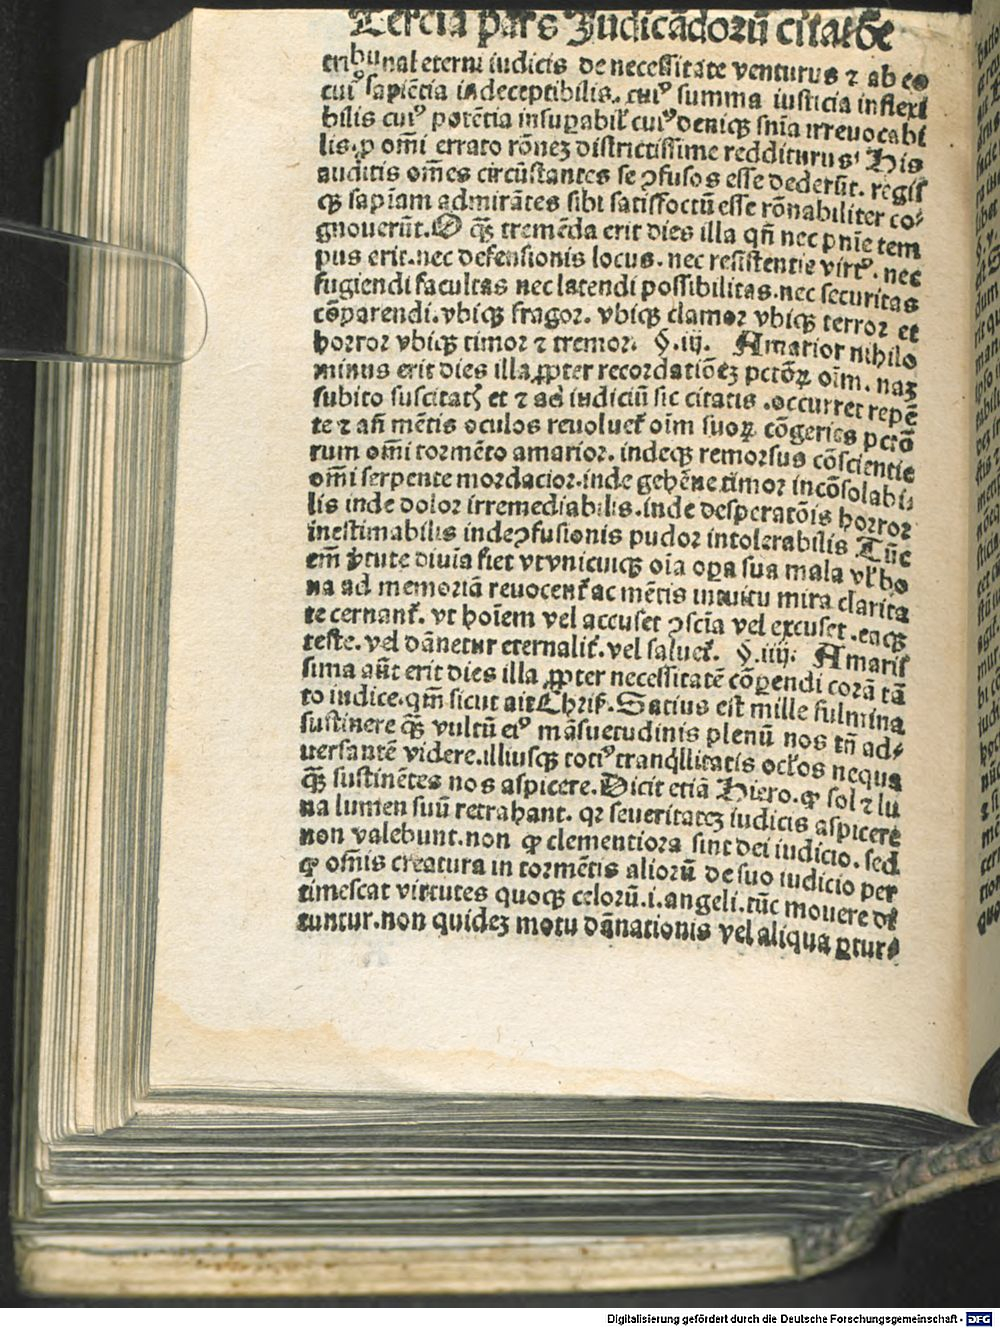 Tercia pars Iudicādorū citatōe
tribunal eterni iudicis de necessitate venturus ⁊ ab eo
cuiꝰ sapiētia indeceptibilis. cuiꝰ summa iusticia inflexi
bilis cuiꝰ potētia insuꝑabilꝭ cuiꝰ deniqꝫ snīa irreuocabi
lis. ꝓ om̄i errato rōneꝫ districtissime redditurus. His
auditis om̄es circūstantes se ꝯfusos esse dederūt. regiſ
qꝫ sapīam admirātes sibi satisfoctū esse rōnabiliter co-
gnouerūt. O qꝫ̄ tremēda erit dies illa qn̄ nec pnīe tem
pus erit. nec defensionis locus. nec resistentie virtꝰ. nec
fugiendi facultas nec latendi possibilitas. nec securitas
cōparendi. vbiqꝫ fragor. vbiqꝫ clamor vbiqꝫ terror et
horror vbiqꝫ timor ⁊ tremor. §.iij. Amarior nihilo
minus erit dies illa ꝓpter recordatiōeꝫ pctōꝝ oīm. naꝫ
subito suscitatꝭ et ⁊ ad iudiciū sic citatis. occurret repē
te ⁊ an̄ mētis oculos reuoluet᷑ oīm suoꝝ cōgeries pctō
rum om̄i tormēto amarior. indeqꝫ remorsus cōscientie
om̄i serpente mordacior. inde gehēne timor incōsolabi-
lis inde dolor irremediabilis. inde desperatōis horror
inestimabilis inde ꝯfusionis pudor intolerabilis Tūc
em̄ v̄tute diuīa fiet vt vnicuiqꝫ oīa oꝑa sua mala vl̓ bo
na ad memoriā reuocent᷑ ac mētis intuitu mira clarita
te cernant᷑. vt hoīem vel accuset ꝯscīa vel excuset. eaqꝫ
teste. vel dānetur eternalit᷑. vel saluet᷑. §.iiij. Amariſ
sima aūt erit dies illa ꝓpter necessitatē cōꝑendi corā tā
to iudice. qm̄ sicut ait Chris. Satius est mille fulmina
sustinere qꝫ̄ vultū eiꝰ māsuetudinis plenū nos tn̄ ad-
uersantē videre. illiusqꝫ totiꝰ tranq̇llitatis ocl̓os nequa
qꝫ̄ sustinētes nos aspicere. Dicit etiā Hiero. ꝙ sol ⁊ lu
na lumen suū retrahant. qꝛ seueritateꝫ iudicis aspicere
non valebunt. non ꝙ clementiora sint dei iudicio. sed
ꝙ om̄is creatura in tormētis aliorū de suo iudicio per
timescat virtutes quoqꝫ celorū. i. angeli. tūc mouere di
cuntur. non quideꝫ motu dānationis vel aliqua ꝑtur-
Digitalisierung gefördert durch die Deutsche Forschungsgemeinschaft - DFG